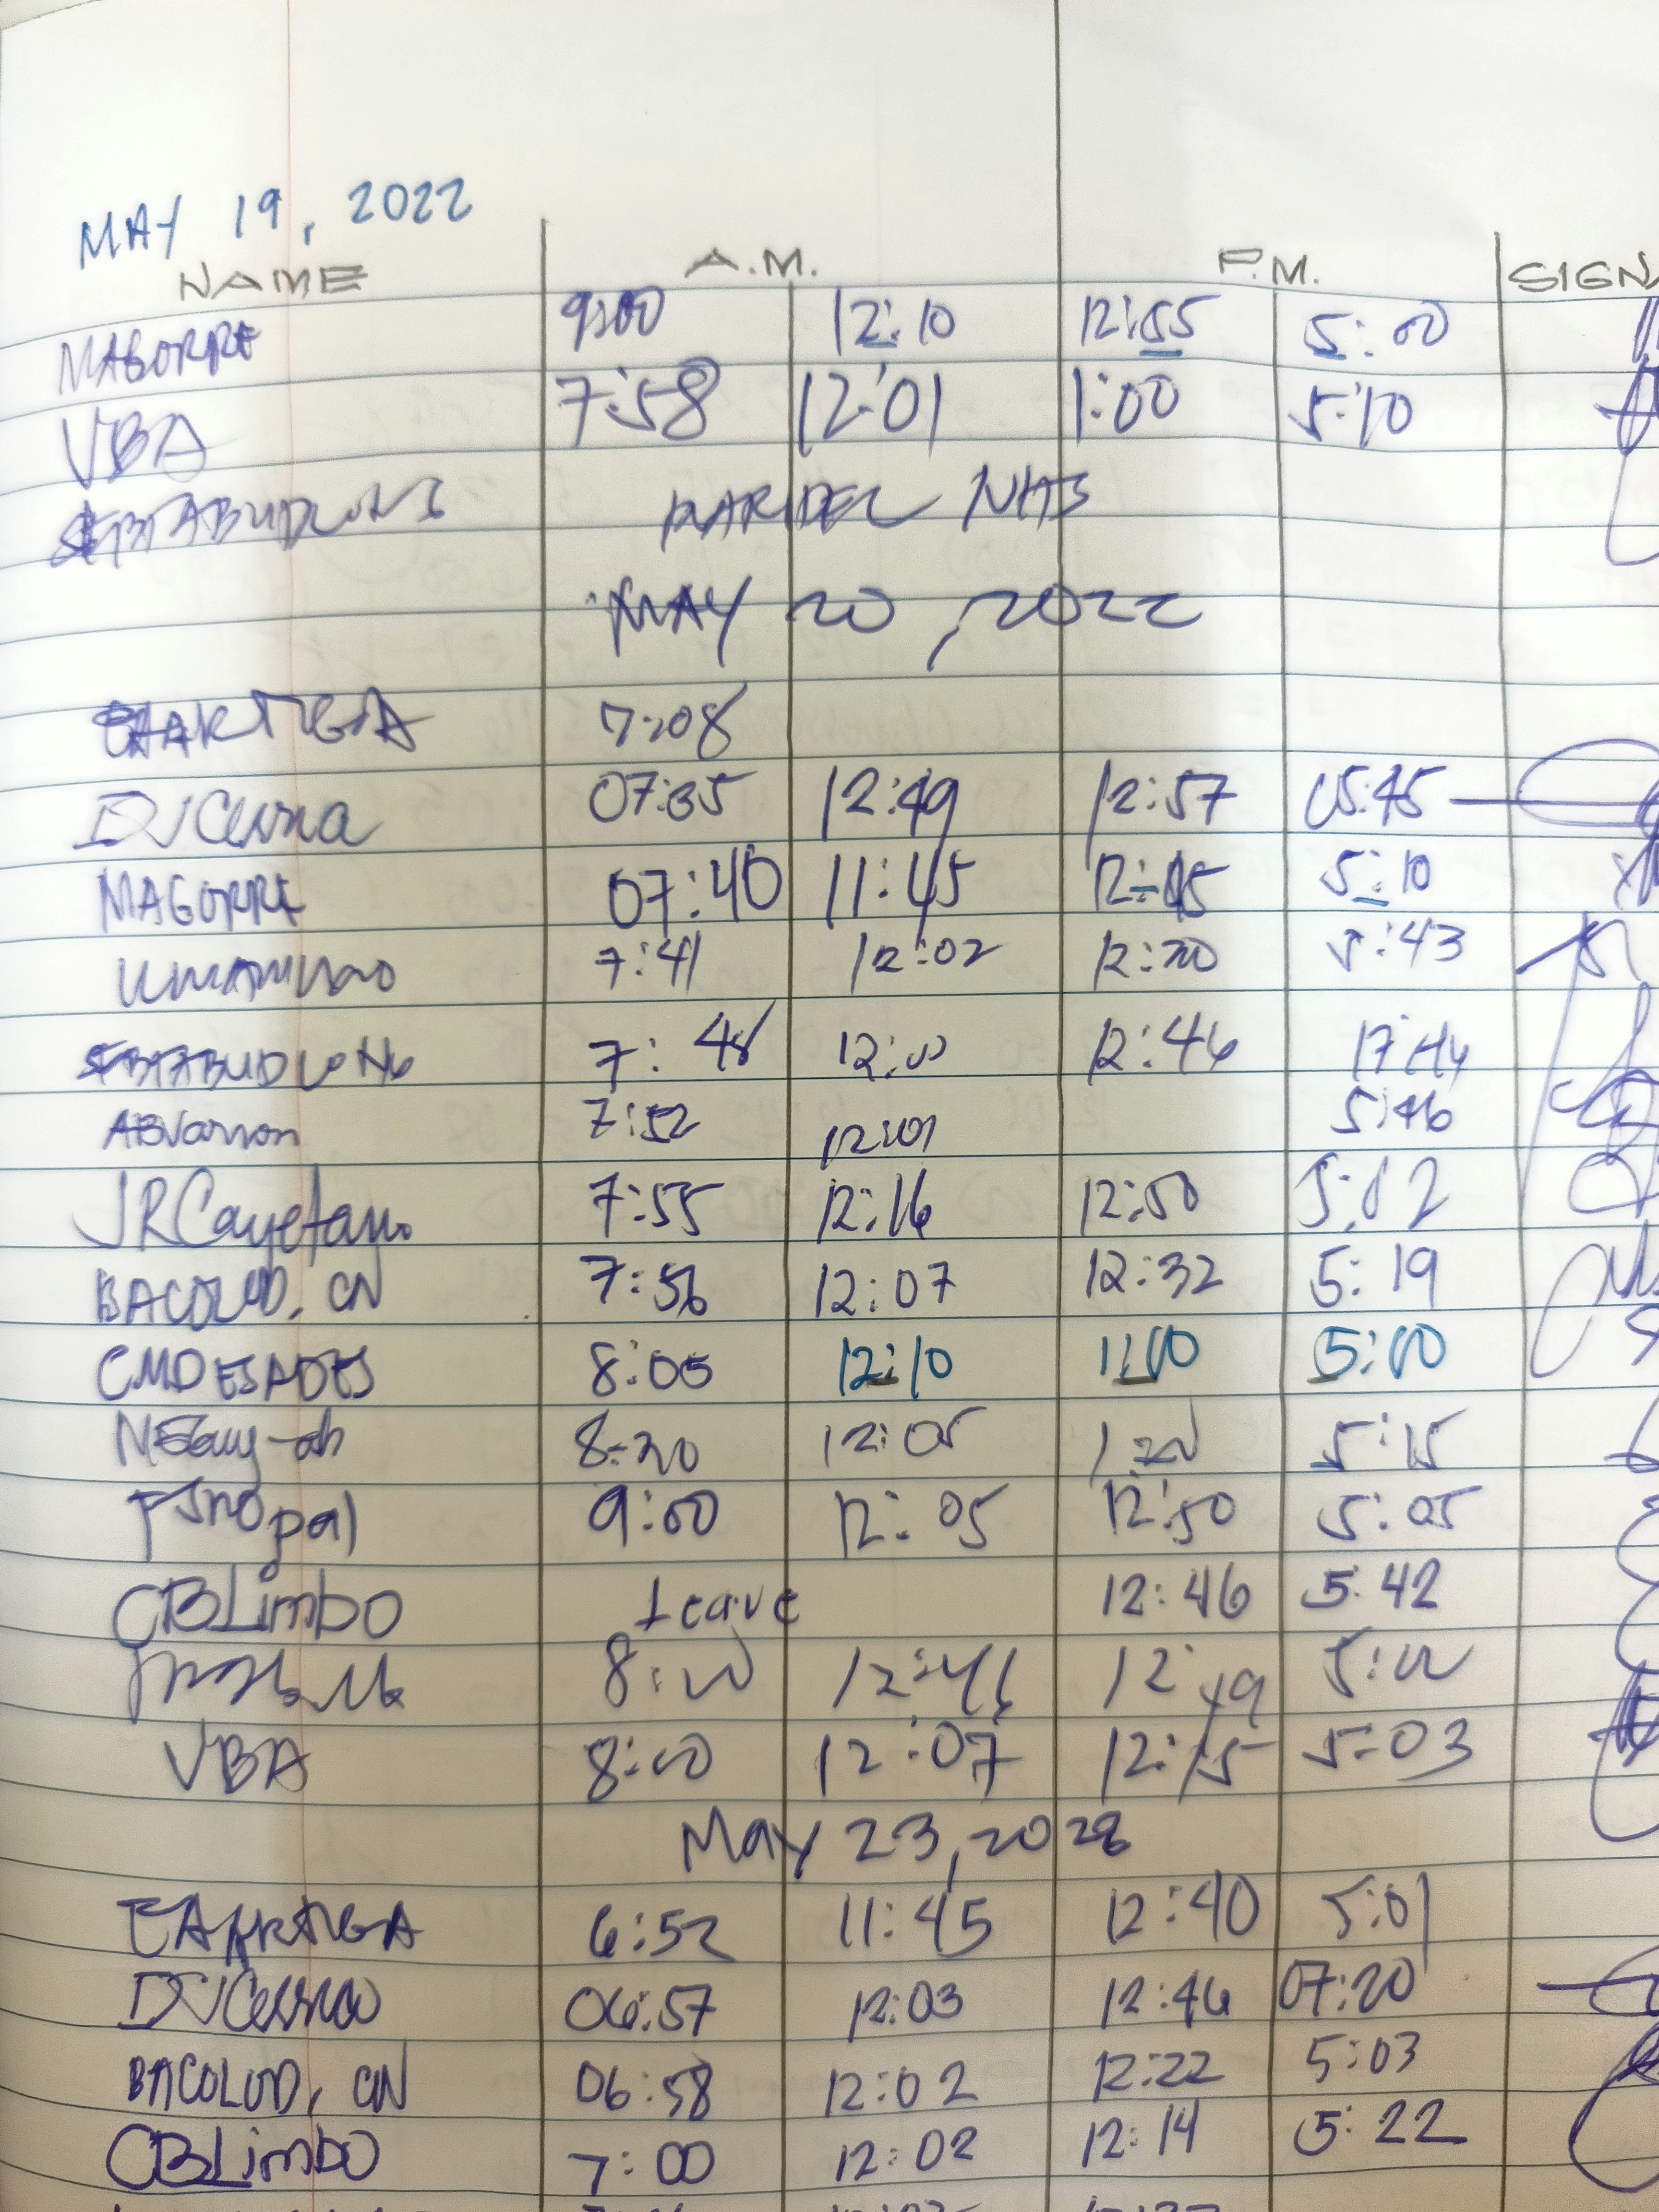 MAY 19, 2022
NAME A.M. P.M. SIGNA
MAGORRE 9:00 12:10 12:55 5:00
VBA 7:58 12:01 1:00 5:10
NHS
MAY 20, 2022
EAARTIGA 7:08
DJCerna 07:35 12:49 12:57 05:45
MAGORRE 07:40 11:45 5:10
7:41 12:02 12:20 5:43
7:48 12:00 12:46
7:52 12:01 5:46
JRCayetano 7:55 12:16 12:50 5:02
BACOLOD, CN 7:56 12:07 12:32 5:19
CMDESADES 8:05 12:10 1:00 5:00
8:20 12:05 5:15
9:00 12:05 12:50 5:05
CBLimbo Leave 12:46 5:42
8:00 12:46 12:49 5:00
VBA 8:00 12:07 12:15 5:03
May 23, 2022
EAARTIGA 6:52 11:45 12:40 5:01
DJCerna 06:57 12:03 12:46 07:20
BACOLOD, CN 06:58 12:02 12:22 5:03
CBLimbo 7:00 12:02 12:14 5:22